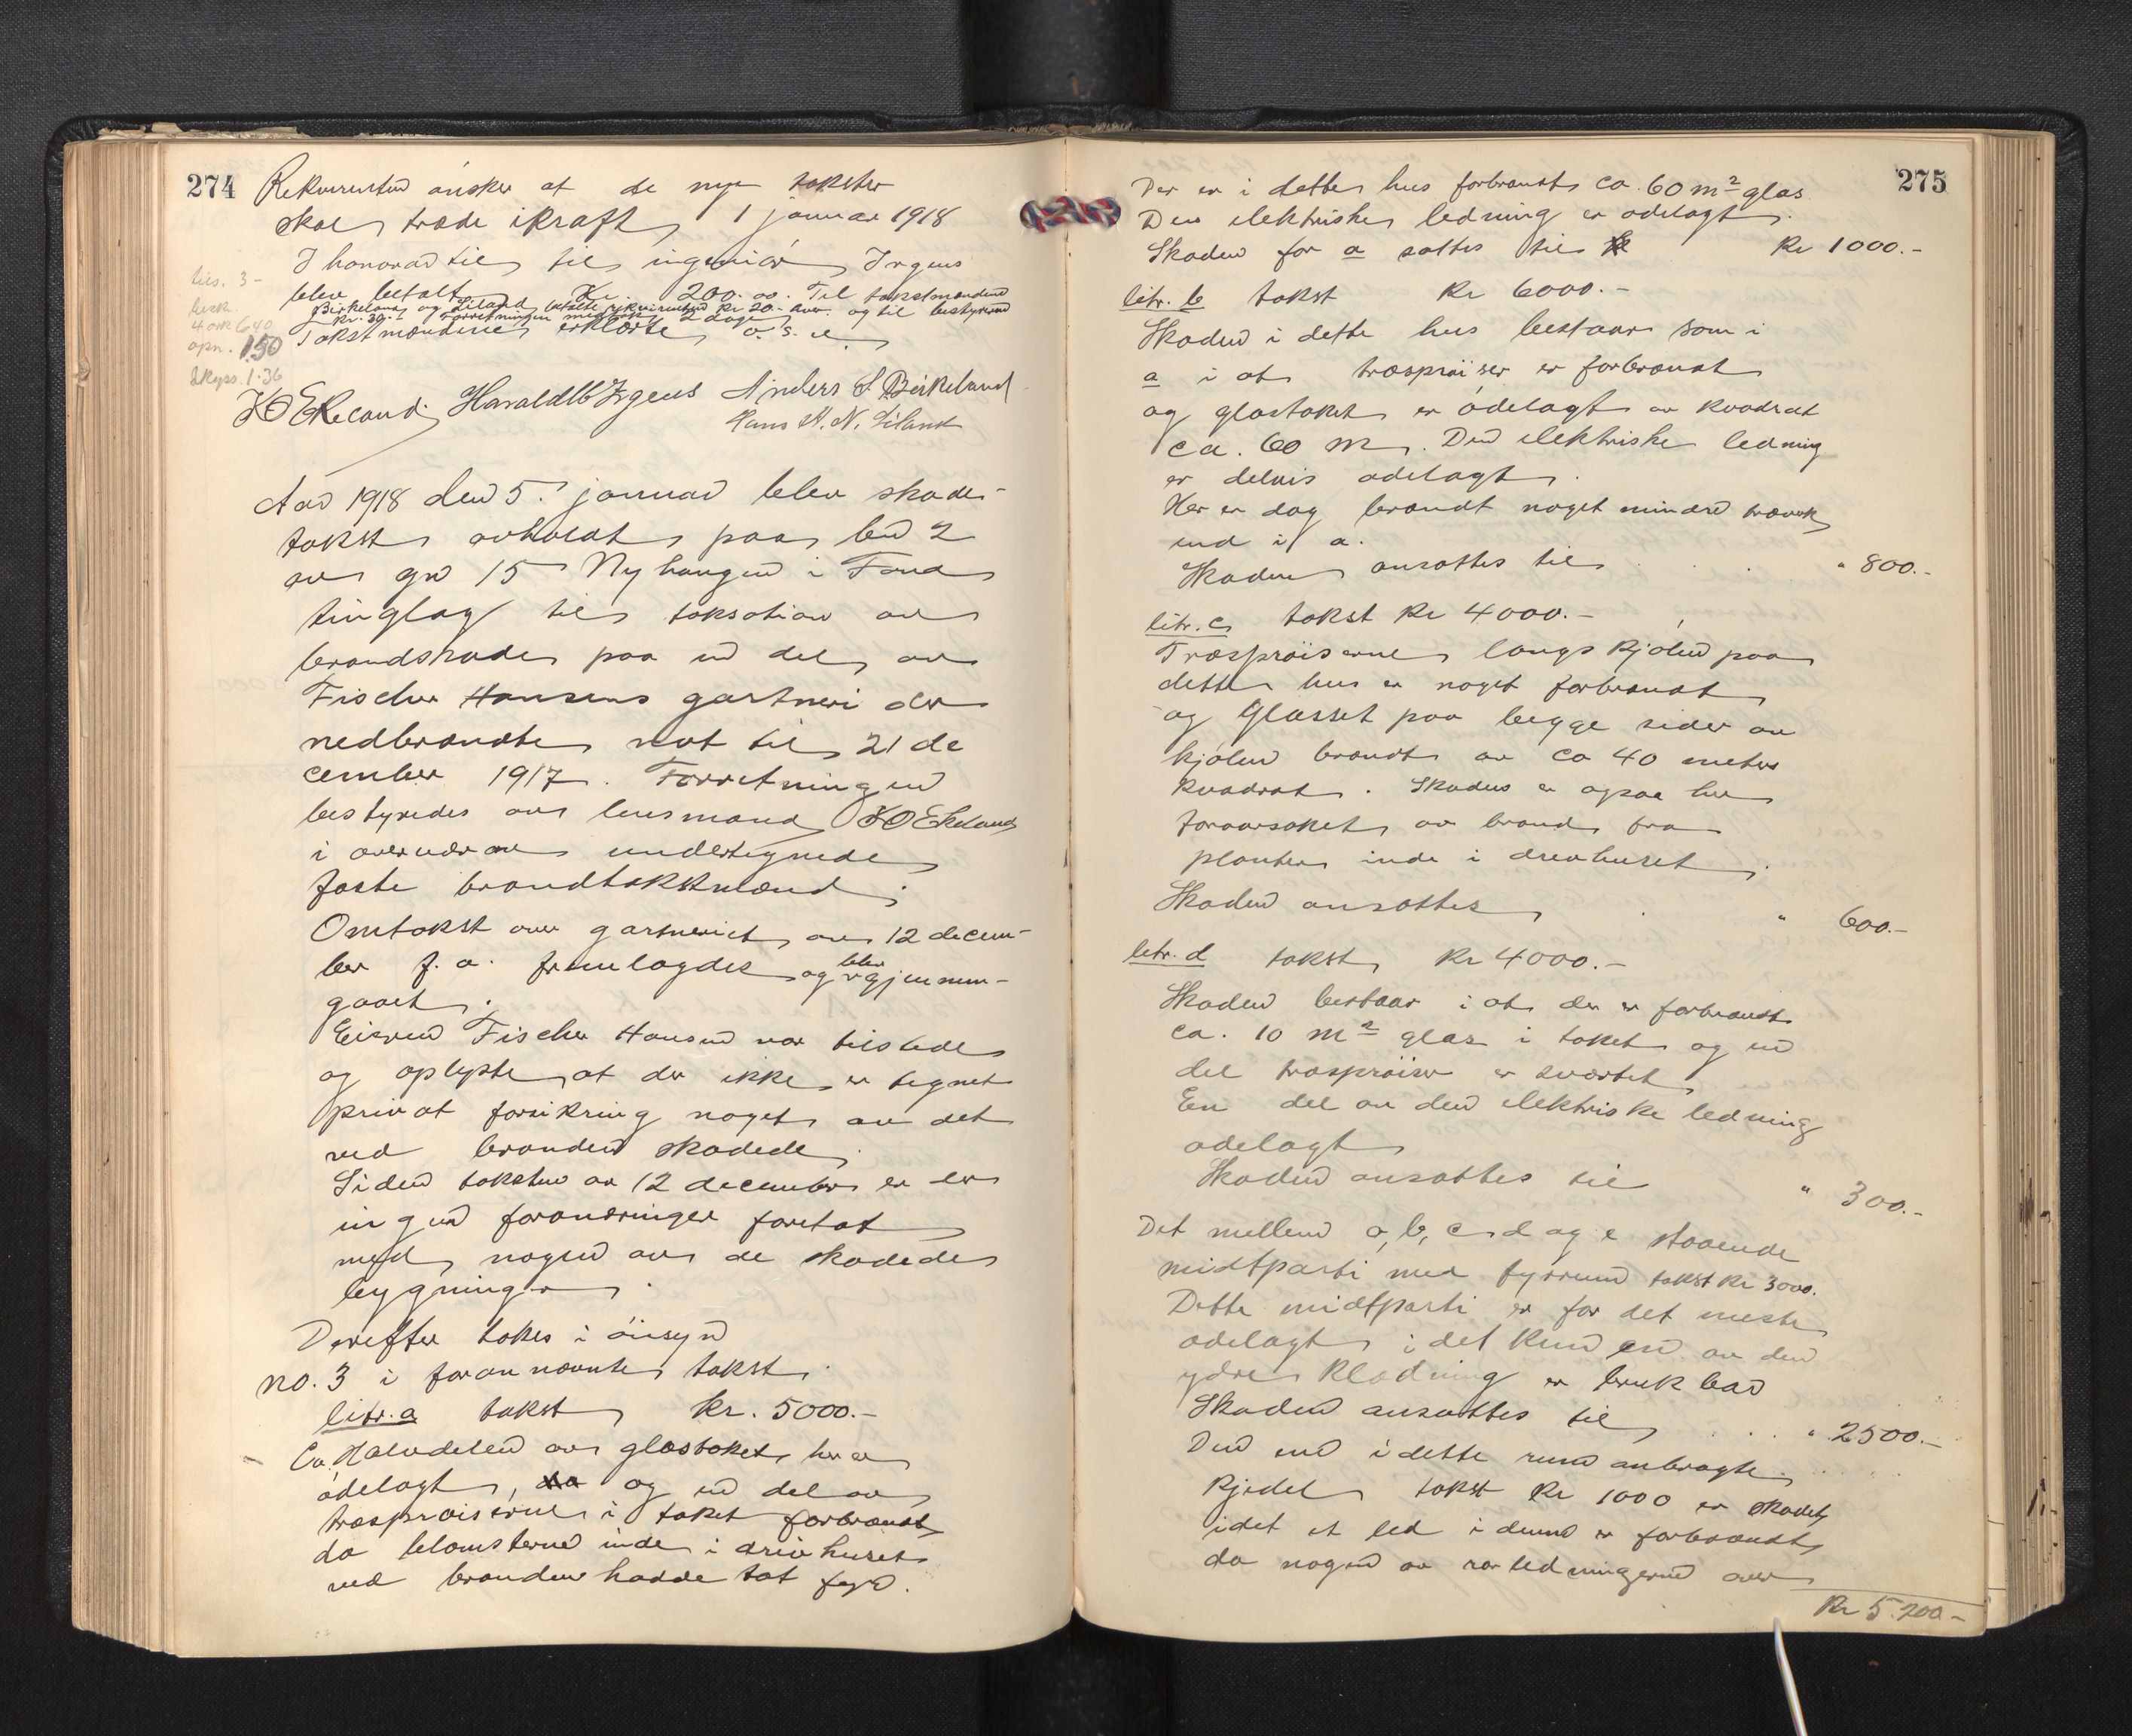 274
Rekvirenten ønsker at de nye takster
skal træde ikraft 1 januar 1918
I honorar til til ingeniør Irgens
blev betalt Kr. 200.00. Til takstmændene
Birkeland og Liland betalte rekvirenten Kr 20.- hver og til bestyreren
Kr. 30.- Forretningen medtok 2 dage
Takstmændene erklærte o. s. v.
tils. 3-
besk.
4 ark 6.40
opn. 1.50
skyss. 1.36
K O Ekeland Harald B Irgens Anders S Birkeland
Hans H. N. Liland
Aar 1918 den 5. januar blev skade-
takst avholdt paa bn 2
av gn 15 Nyhaugen i Fana
tinglag til taksation av
brandskade paa en del av
Fischer Hansens gartneri der
nedbrændte nat til 21 de
cember 1917. Forretningen
bestyredes av lensmand K O Ekeland
i overvær av undertegnede
faste brandtakstmænd.
Omtakst over gartneriet av 12 decem-
ber f. a. fremlagdes og blev gjennem-
gaaet.
Eieren Fischer Hansen var tilstede
og oplyste at der ikke er tegnet
privat forsikring noget av det
ved branden skadede.
Siden taksten av 12 december er der
ingen forandringer foretat
med nogen av de skadede
bygninger.
Derefter tokes i øiesyn
no. 3 i forannævnte takst.
litr. a takst kr. 5000.-
Ca. Halvdelen av glastaket her er
ødelagt, da og en del av
træsprøiserne i taket forbrændt
da blomsterne inde i drivhuset
ved branden hadde tat fyr.
275
Der er i dette hus forbrændt ca. 60 m² glas
Den elektriske ledning er ødelagt.
Skaden for a sættes til kr Kr 1000.-
litr. b takst Kr 6000.-
Skaden i dette hus bestaar som i
a i at træsprøiser er forbrændt
og glastaket er ødelagt av kvadrat
ca. 60 m. Den elektriske ledning
er delvis ødelagt.
Her er dog brændt noget mindre træverk
end i a.
Skaden ansættes til " 800.-
litr. c takst Kr 4000.-
Træsprøiserne langs kjølen paa
dette hus er noget forbrændt
og Glasset paa begge sider av
kjølen brændt av ca 40 meter
kvadrat. Skaden er ogsaa her
foraarsaket av brand fra
planter inde i drevhuset.
Skaden ansættes " 600.-
litr. d takst Kr 4000.-
Skaden bestaar i at der er forbrændt
ca. 10 m² glas i taket og en
del træsprøiser er sværtet.
En del av den elektriske ledning
ødelagt
Skaden ansættes til " 300.-
Det mellem a, b, c d og e staaende
midtparti med fyrrum takst Kr 3000.
Dette midtparti er for det meste
ødelagt i det kun en av den
ydre klædning er brukbar
Skaden ansættes til " 2500.-
Den end i dette rum anbragte
kjedel takst Kr 1000 er skadet
idet et led i denne er forbrændt
da nogen av rørledningerne over
Kr 5.200.-